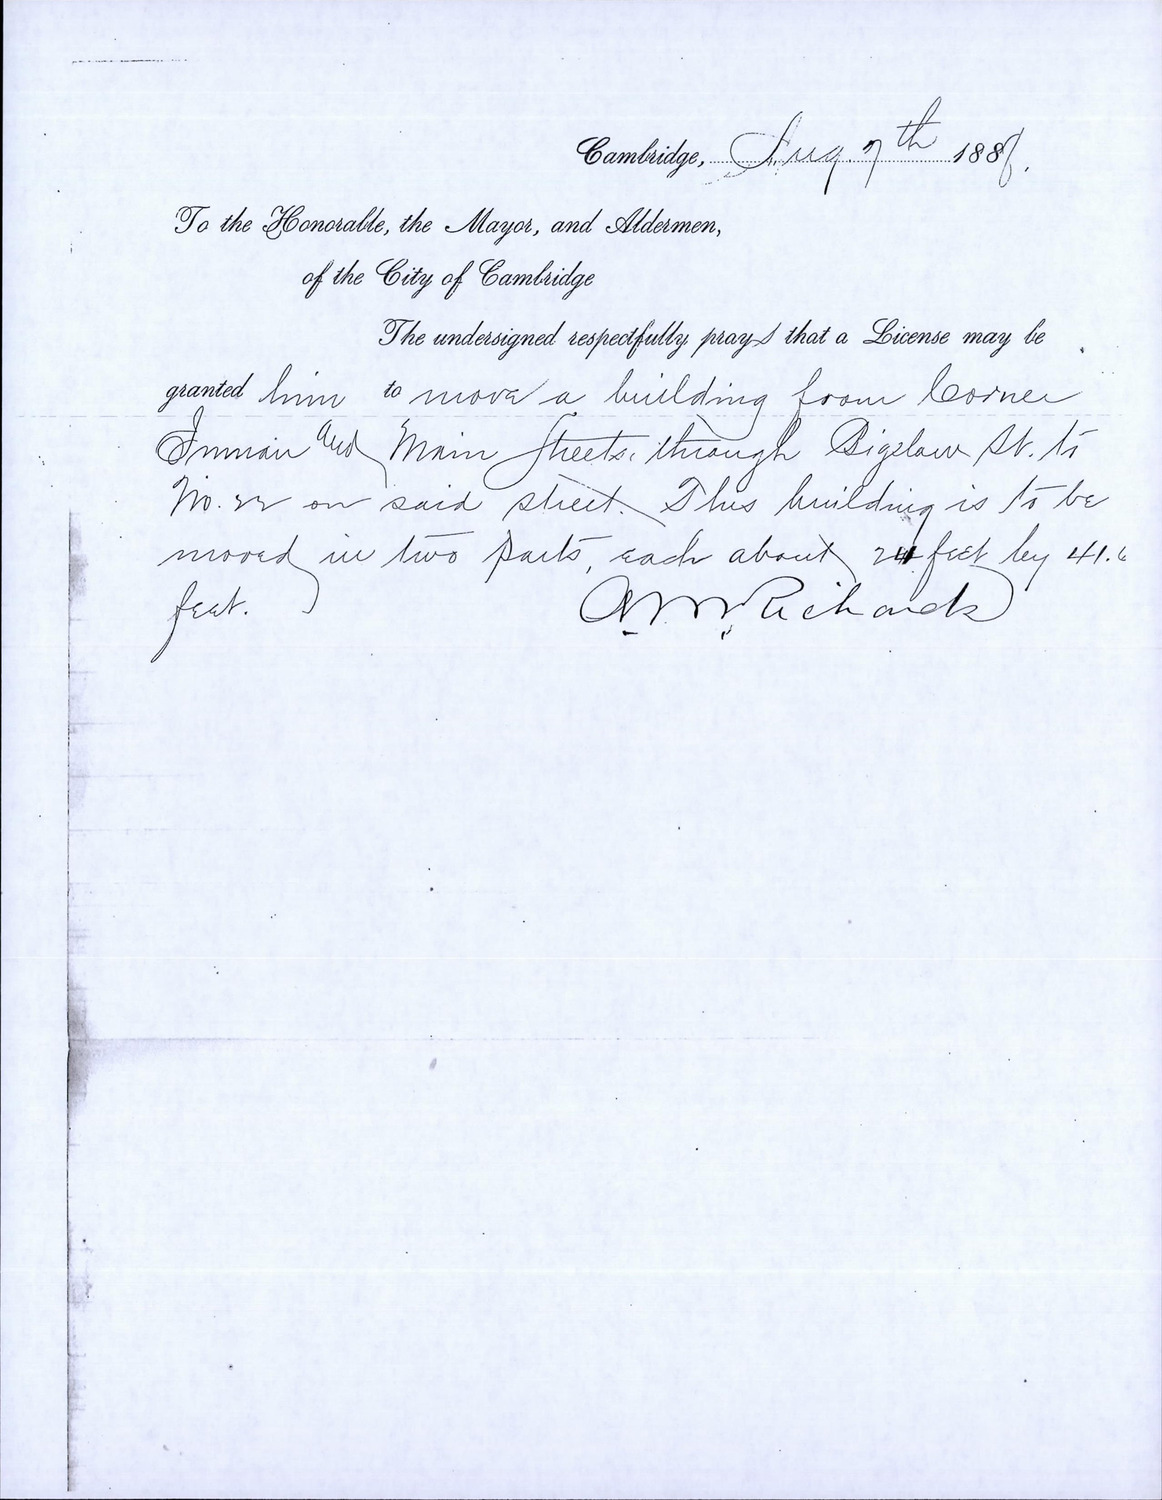 Cambridge, Aug. 7th 188
To the Honorable, the Mayor, and Aldermen,
of the City of Cambridge
The undersigned respectfully prays that a License may be
granted him to move a building from Corner
Inman and Main Streets, through Bigelow St. to
No. 22 on said street. This building is to be
moved in two parts, each about 24 feet by 41.6
feet. Richards